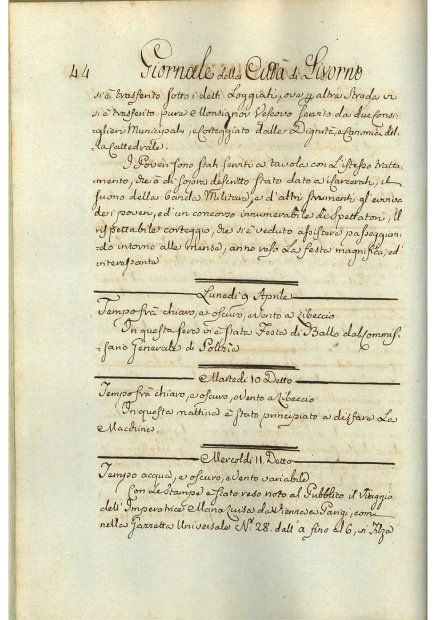 44 Giornale della Città di Livorno
si è trasferito sotto i detti Loggiati, ove p altra Strada vi
si è trasferito pure Monsignor Vescovo servito da due Consi-
glieri Municipali, e corteggiato dalle Dignità, e Canonici del-
la Cattedrale.
I Poveri sono stati serviti a tavola con L'istesso tratta-
mento, che è di sopra descritto stato dato a i Carcerati, il
suono della banda Militare, e d'altri strumenti gl'evviva
de i poveri, ed un concorso innumerabile di Spettatori, il
rispettabile corteggio, che si è veduto assistere passeggian-
do intorno alle mense, anno reso La festa magnifica, ed
interessante
Lunedi 9 Aprile
Tempo frà chiaro, e oscuro, e Vento a Libeccio
In questa sera vi è stata Festa di Ballo dal Commis-
sario Generale di Polizia
Martedi 10 Detto
Tempo frà chiaro, e oscuro, e Vento a Libeccio
In questa mattina è stato principiato a disfare La
Macchina
Mercoldi 11 Detto
Tempo acqua, e oscuro, e Vento variabile
Con Le Stampe è stato reso noto al Pubblico il Viaggio
dell'Imperatrice Maria Luisa da Vienna a Parigi, come
nella Gazzetta Universale N.º 28. dall' a fino al 6, in Filza